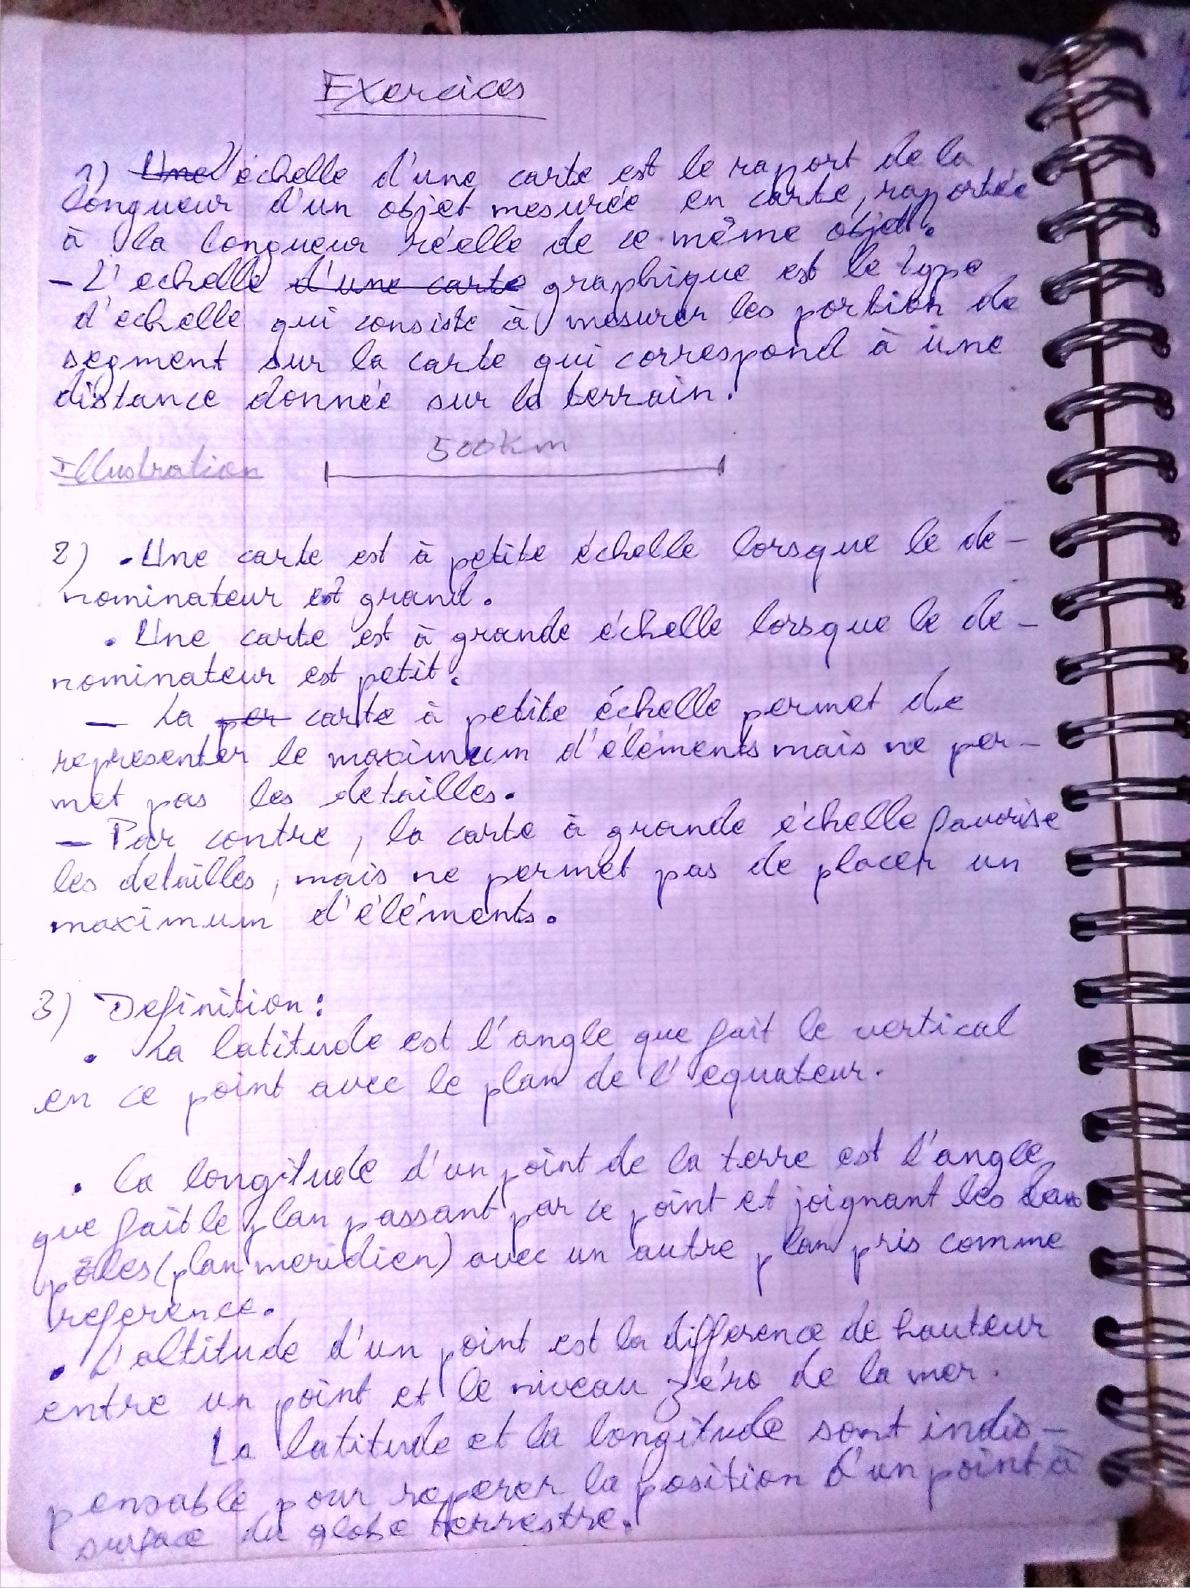 Exercices
1) Une l'échelle d'une carte est le raport de la
longueur d'un objet mesurée en carte, raportée
à la longueur réelle de ce même objet.
- L'echelle d'une carte graphique est le type
d'échelle qui consiste à mesurer les portion de
segment sur la carte qui correspond à une
distance donnée sur le terrain.
Illustration 500km
2) • Une carte est à petite échelle lorsque le de-
nominateur est grand.
• Une carte est à grande échelle lorsque le dé-
nominateur est petit.
- La per carte à petite échelle permet de
representer le maximum d'éléments mais ne per-
met pas les detailles.
- Par contre, la carte à grande échelle favorise
les detailles, mais ne permet pas de placer un
maximum d'éléments.
3) Definition:
• La latitude est l'angle que fait le vertical
en ce point avec le plan de l'equateur.
• La longitude d'un point de la terre est l'angle
que fait le plan passant par ce point et joignant les
pôles (plan meridien) avec un autre plan pris comme
reference.
• L'altitude d'un point est la difference de hauteur
entre un point et le niveau zéro de la mer.
La latitude et la longitude sont indis-
pensable pour reperer la position d'un point à
surface du globe terrestre.